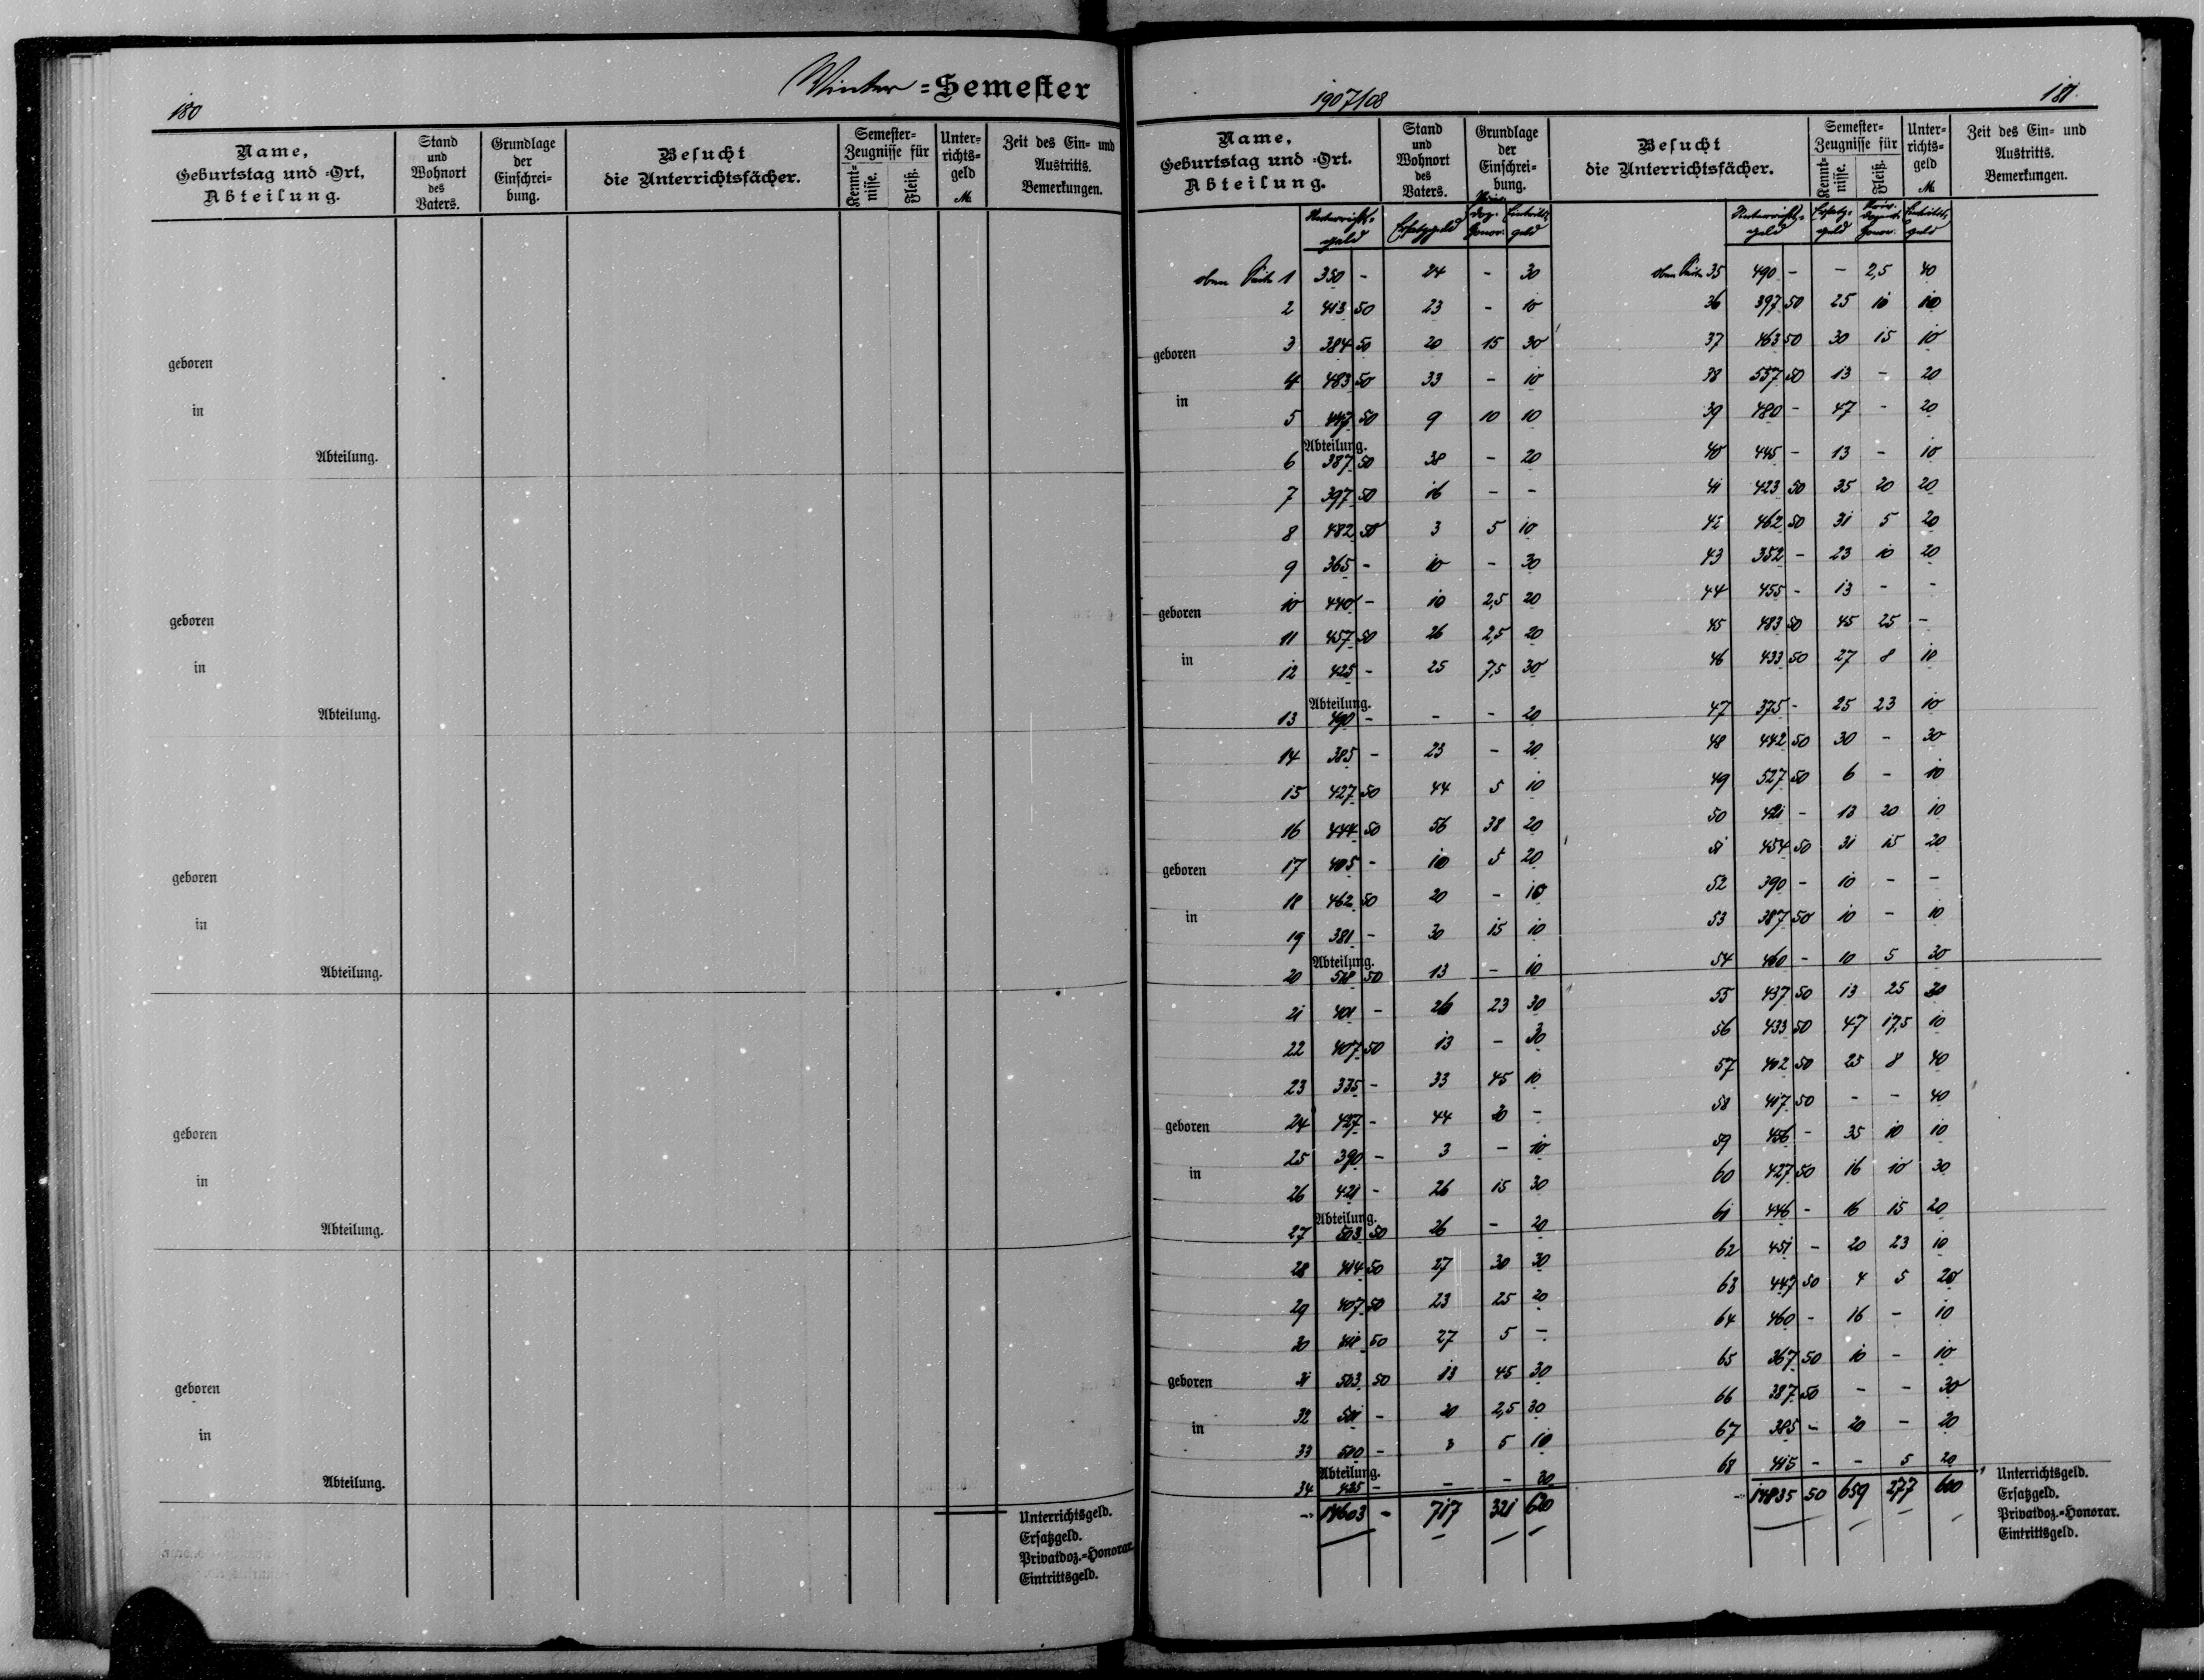 Winter=Semester
180
Name,
Geburtstag und =Ort,
Abteilung.
Stand
und
Wohnort
des
Vaters.
Grundlage
der
Einschrei=
bung.
Besucht
die Unterrichtsfächer.
Semester=
Zeugnisse für
Kennt=
nisse.
Fleiß.
Unter=
richts=
geld
M.
Zeit des Ein= und
Austritts.
Bemerkungen.
geboren
in
Abteilung.
geboren
in
Abteilung.
geboren
in
Abteilung.
geboren
in
Abteilung.
geboren
in
Abteilung.
Unterrichtsgeld.
Ersatzgeld.
Privatdoz.=Honorar.
Eintrittsgeld.
1907/08
181.
Name,
Geburtstag und =Ort.
Abteilung.
Stand
und
Wohnort
des
Vaters.
Grundlage
der
Einschrei=
bung.
Besucht
die Unterrichtsfächer.
Semester=
Zeugnisse für
Kennt=
nisse.
Fleiß.
Unter=
richts=
geld
M.
Zeit des Ein= und
Austritts.
Bemerkungen.
Unterrichts=
geld
Ersatzgeld
Priv.
doz.
Honor.
Eintritts
geld
oben Seite 1 350 - 24 - 30
2 413 50 23 - 10
geboren
3 384 50 20 15 30
4 483 50 33 - 10
in
5 447 50 9 10 10
Abteilung.
6 387 50 38 - 20
7 397 50 16 - -
8 482 50 3 5 10
9 365 - 10 - 30
geboren
10 440 - 10 2,5 20
11 457 50 26 2,5 20
in
12 425 - 25 7,5 30
Abteilung.
13 490 - - - 20
14 385 - 23 - 20
15 427 50 44 5 10
16 444 50 56 38 20
geboren
17 405 - 10 5 20
18 462 50 20 - 10
in
19 381 - 30 15 10
Abteilung.
20 518 50 13 - 10
21 401 - 26 23 30
22 407 50 13 - 30
23 335 - 33 45 10
geboren
24 427 - 44 20 -
25 390 - 3 - 10
in
26 421 - 26 15 30
Abteilung.
27 503 50 26 - 20
28 414 50 27 30 30
29 407 50 23 25 20
30 50 27 5 -
geboren
31 503 50 13 45 30
32 501 - 20 2,5 30
in
33 500 - 3 5 10
Abteilung.
34 425 - - - 30
14603 - 717 321 620
Unterrichts=
geld
Ersatz=
geld
Priv.
dozent.
Honor.
Eintritts
geld
oben Seite 35 490 - - 2,5 40
36 397 50 25 10 10
37 463 50 30 15 10
38 557 50 13 - 20
39 480 - 47 - 20
40 445 - 13 - 10
41 423 50 35 20 20
42 462 50 31 5 20
43 352 - 23 10 20
44 455 - 13 - -
45 483 50 45 25 -
46 433 50 27 8 10
47 375 - 25 23 10
48 442 50 30 - 30
49 527 50 6 - 10
50 421 - 13 20 10
51 454 50 31 15 20
52 390 - 10 - -
53 387 50 10 - 10
54 460 - 10 5 30
55 437 50 13 25 30
56 433 50 47 17,5 10
57 402 50 25 8 40
58 417 50 - - 40
59 456 - 35 10 10
60 427 50 16 10 30
61 446 - 16 15 20
62 451 - 20 23 10
63 447 50 4 5 20
64 460 - 16 - 10
65 367 50 10 - 10
66 387 50 - - 30
67 385 - 20 - 20
68 415 - - 5 20
14835 50 659 277 600
Unterrichtsgeld.
Ersatzgeld.
Privatdoz.=Honorar.
Eintrittsgeld.